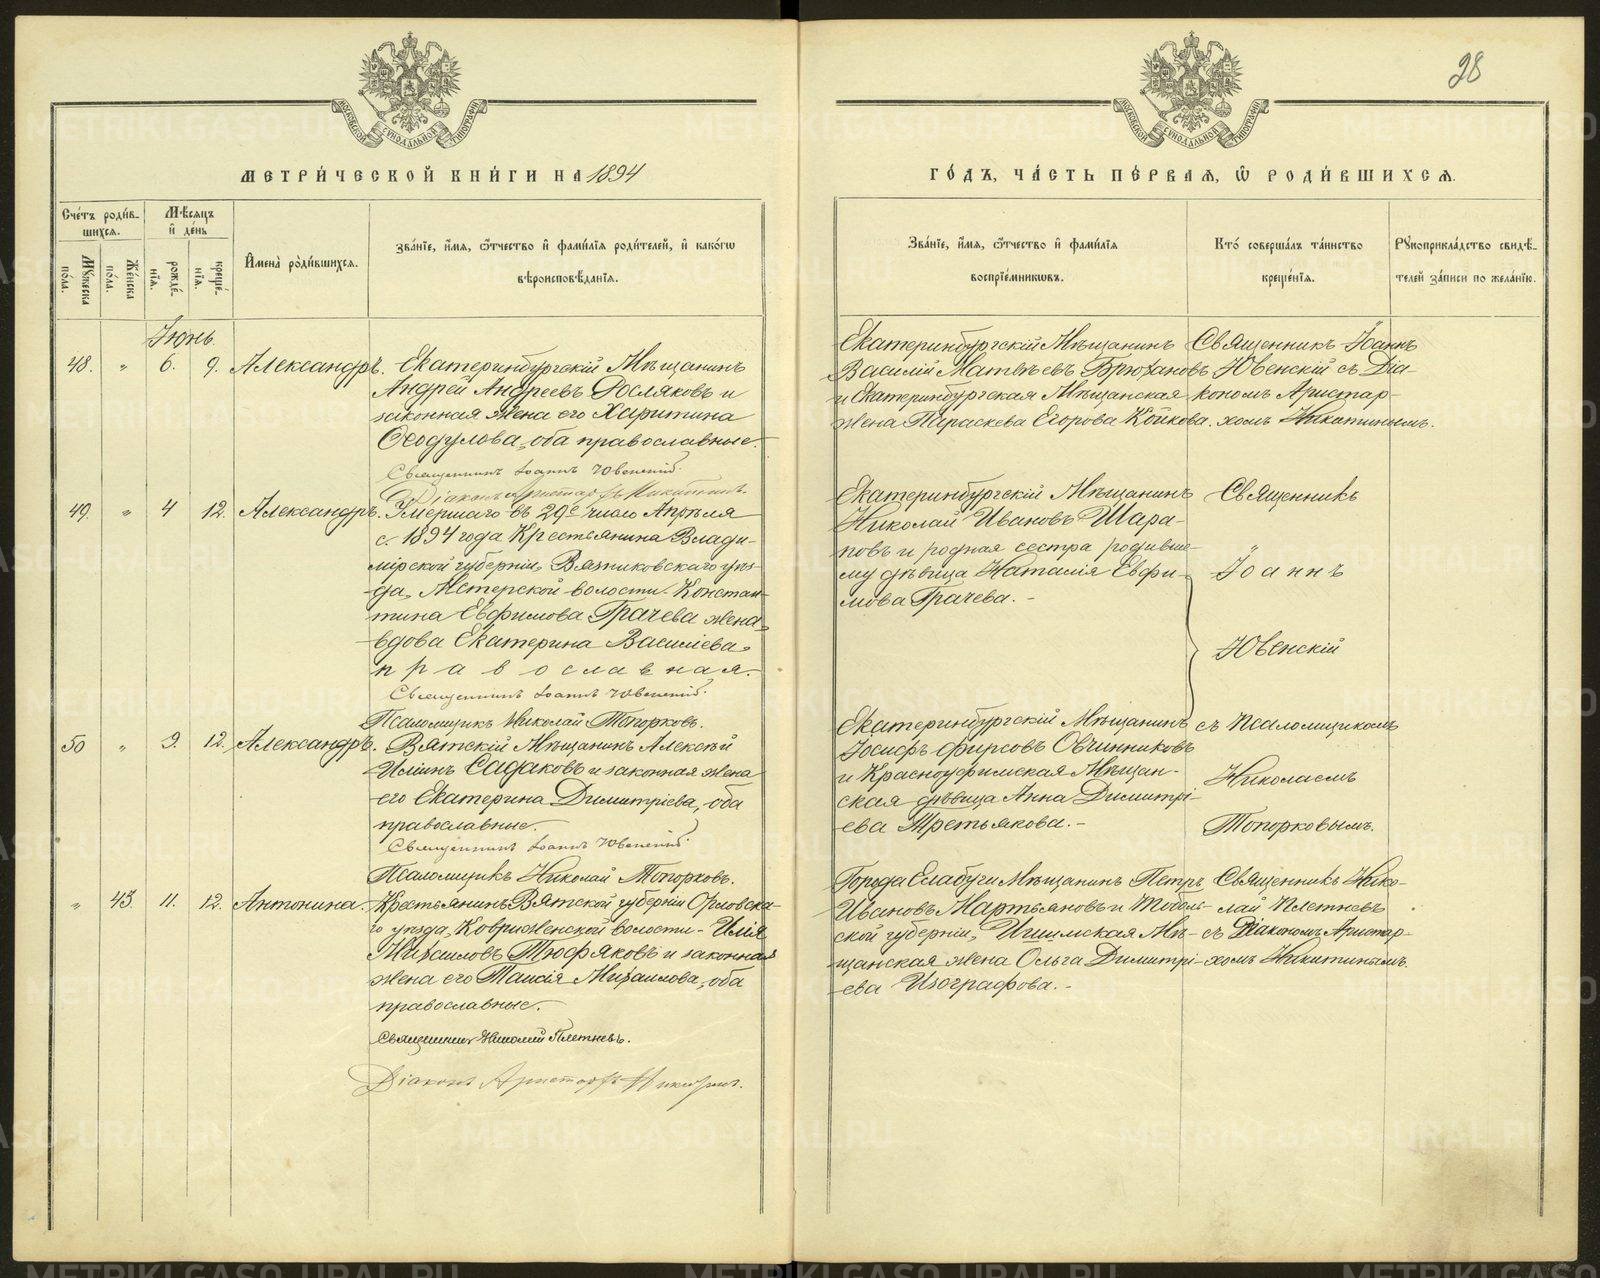 28
МЕТРИ́ЧЕСКОЙ КНИ́ГИ НА 1894
ГО́ДЪ, ЧА́СТЬ ПЕ́РВАЯ, Ѽ РОДИ́ВШИХСЯ.
Сче́тъ роди́в-
шихся.
Мꙋжеска
по́ла.
Же́нска
по́ла.
Мѣсяцъ
и҆ де́нь
рожде́-
нїя.
креще́-
нїя.
И҆мена̀ роди́вшихся.
Зва́нїе, и҆́мя, ѻ҆́тчество и҆ фами́лїя роди́телей, и҆ како́гѡ
вѣроисповѣ́данїя.
Зва́нїе, и҆́мя, ѻ҆́тчество и҆ фами́лїя
воспрїе́мникѡвъ.
Кто̀ соверша́лъ та́инство
креще́нїя.
Рꙋкоприкла́дство свидѣ́-
телей за́писи по жела́нїю.
Іюнь.
48. " 6. 9. Александръ.
Екатеринбургскій Мѣщанинъ
Андрей Андреевъ Росляковъ и
законная жена его Харитина
Ѳеодулова, оба православные.
Священникъ Іоаннъ Ювенскій.
Діаконъ Аристархъ Никитинъ.
Екатеринбургскій Мѣщанинъ
Василій Матвѣевъ Брюхановъ
и Екатеринбургская Мѣщанская
жена Параскева Егорова Койкова.
Священникъ Іоаннъ
Ювенскій съ Діа-
кономъ Аристар-
хомъ Никитинымъ.
49. " 4 12. Александръ.
Умершаго въ 29е число Апрѣля
с. 1894 года Крестьянина Влади-
мірской губерніи, Вязниковскаго уѣз-
да, Мстерской волости. Констан-
тина Евфимова Грачева жена,
вдова Екатерина Василіева,
православная.
Священникъ Іоаннъ Ювенскій.
Псаломщикъ Николай Топорковъ.
Екатеринбургскій Мѣщанинъ
Николай Ивановъ Шара-
повъ и родная сестра родивше-
му дѣвица Наталія Евфи-
мова Грачева. -
Священникъ
Іоаннъ
Ювенскій
50 " 9. 12. Александръ.
Вятскій Мѣщанинъ Алексѣй
Иліинъ Садаковъ и законная жена
его Екатерина Димитріева, оба
православные.
Священникъ Іоаннъ Ювенскій.
Псаломщикъ Николай Топорковъ.
Екатеринбургскій Мѣщанинъ
Іосифъ Фирсовъ Овчинниковъ
и Красноуфимская Мѣщан-
ская дѣвица Анна Димитрі-
ева Третьякова. -
съ псаломщикомъ
Николаемъ
Топорковымъ.
" 43. 11. 12. Антонина.
Крестьянинъ Вятской губерніи Орловска-
го уѣзда, Ковриженской волости - Илія
Михаиловъ Тюфяковъ и законная
жена его Таисія Михаилова, оба
православные.
Священникъ Николай Плетневъ.
Діаконъ Аристархъ Никитинъ.
Города Елабуги Мѣщанинъ Петръ
Ивановъ Мартьяновъ и Тоболь-
ской губерніи, Ишимская Мѣ-
щанская жена Ольга Димитрі-
ева Изографова. -
Священникъ Нико-
лай Плетневъ
съ Діакономъ Аристар-
хомъ Никитинымъ.